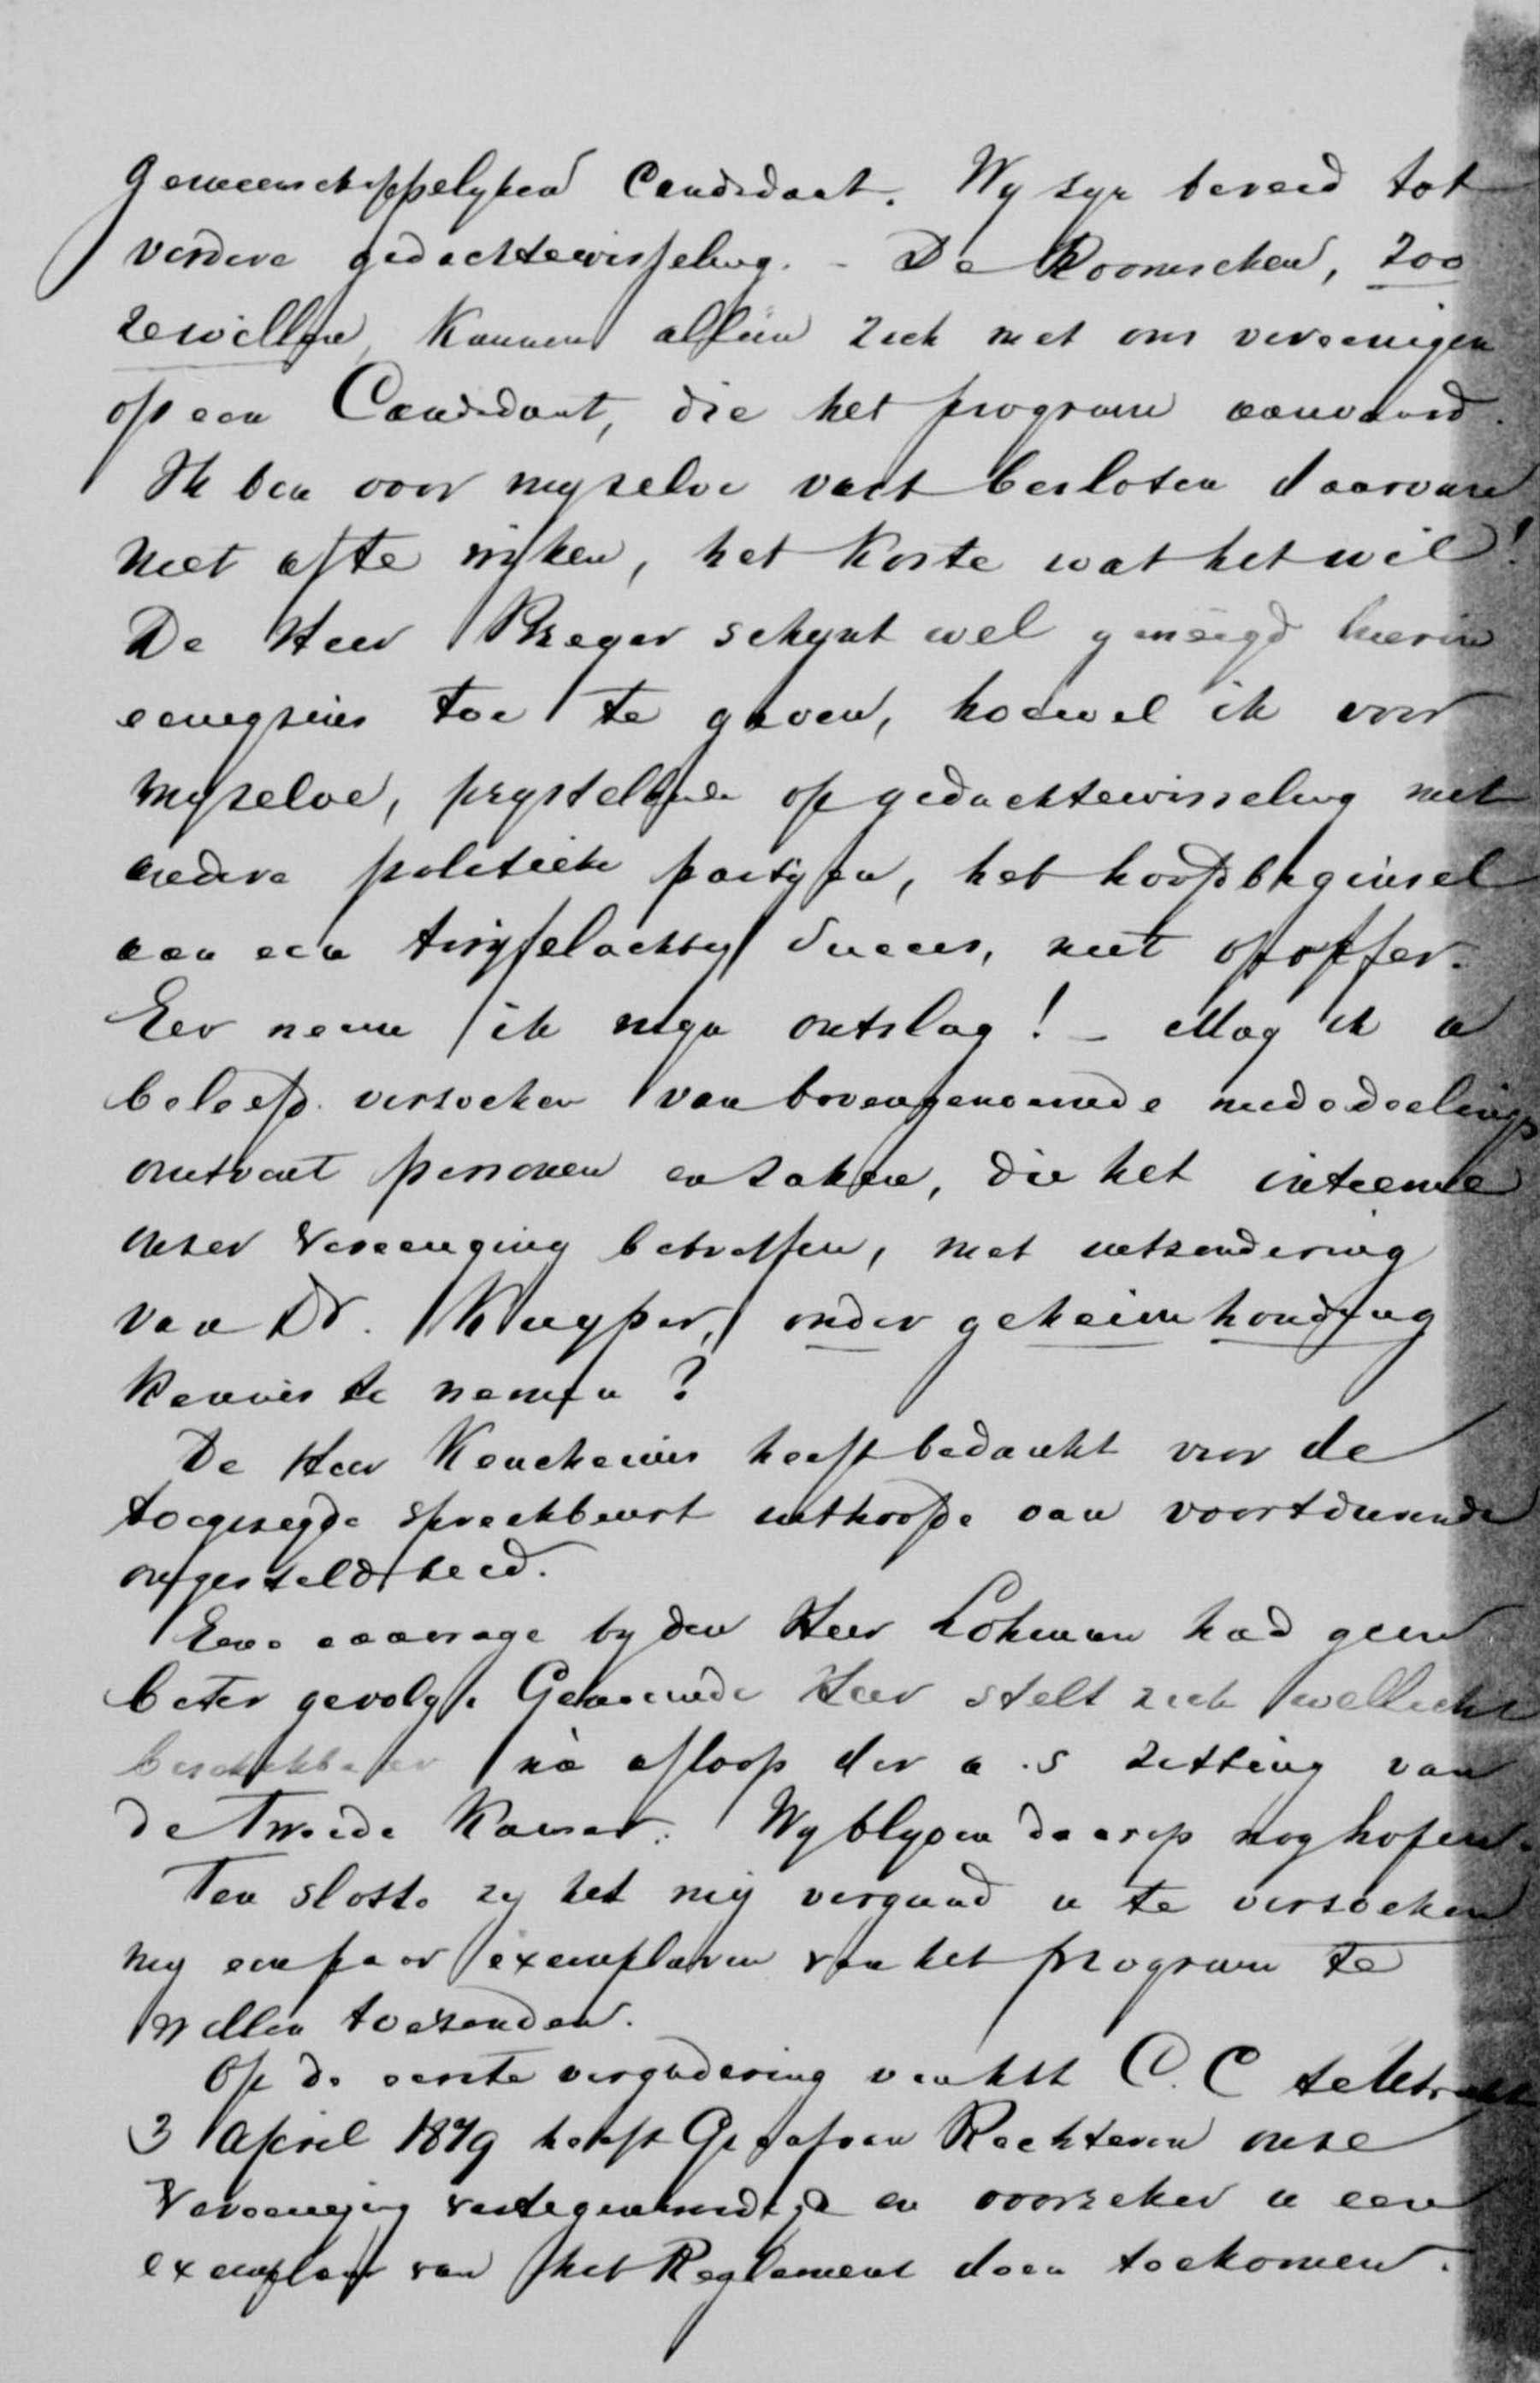 gemeenschappelyken Candidaat. Wy zyn bereid tot
verdere gedachtewisseling. - De Roomschen, zoo
ze willen, kunnen alleen zich met ons vereenigen
op een Candidaat, die het program aanvaard.
Ik ben voor myzelve vast besloten daarvan
niet af te wyken, het koste wat het wil!
De Heer Breger schynt wel geneigd hierin
eenigzins toe te geven, hoewel ik voor
myzelve, prystellende op gedachtewisseling met
andere politieke partyen, het hoofdbeginsel
aan een twyfelachtig succes, niet opoffer.
Eer neem ik myn ontslag! - Mag ik u
beleefd verzoeken van bovengenoemde mededeelings
omtrent personen en zaken, die het interne
onzer Vereeniging betreffen, met uitzondering
van Dr. Kuyper, onder geheimhouding
kennis te nemen?
De Heer Keuchenius heeft bedankt voor de
toegezegde spreekbeurt uithoofde van voortdurende
ongesteldheid.
Eene aanvrage by den Heer Lohman had geen
beter gevolg. Genoemde Heer stelt zich wellicht
beschikbaar nà afloop der a.s zitting van
de Tweede Kamer. Wy blyven daarop nog hopen.
Ten slotte zy het my vergund u te verzoeken
my een paar exemplaren van het program te
willen toezenden.
Op de eerste vergadering van het C. C te Utrecht
3 April 1879 heeft Graaf van Rechteren onze
Vereeniging vertegenwoordigd en voorzeker u een
exemplaar van het Reglement doen toekomen.